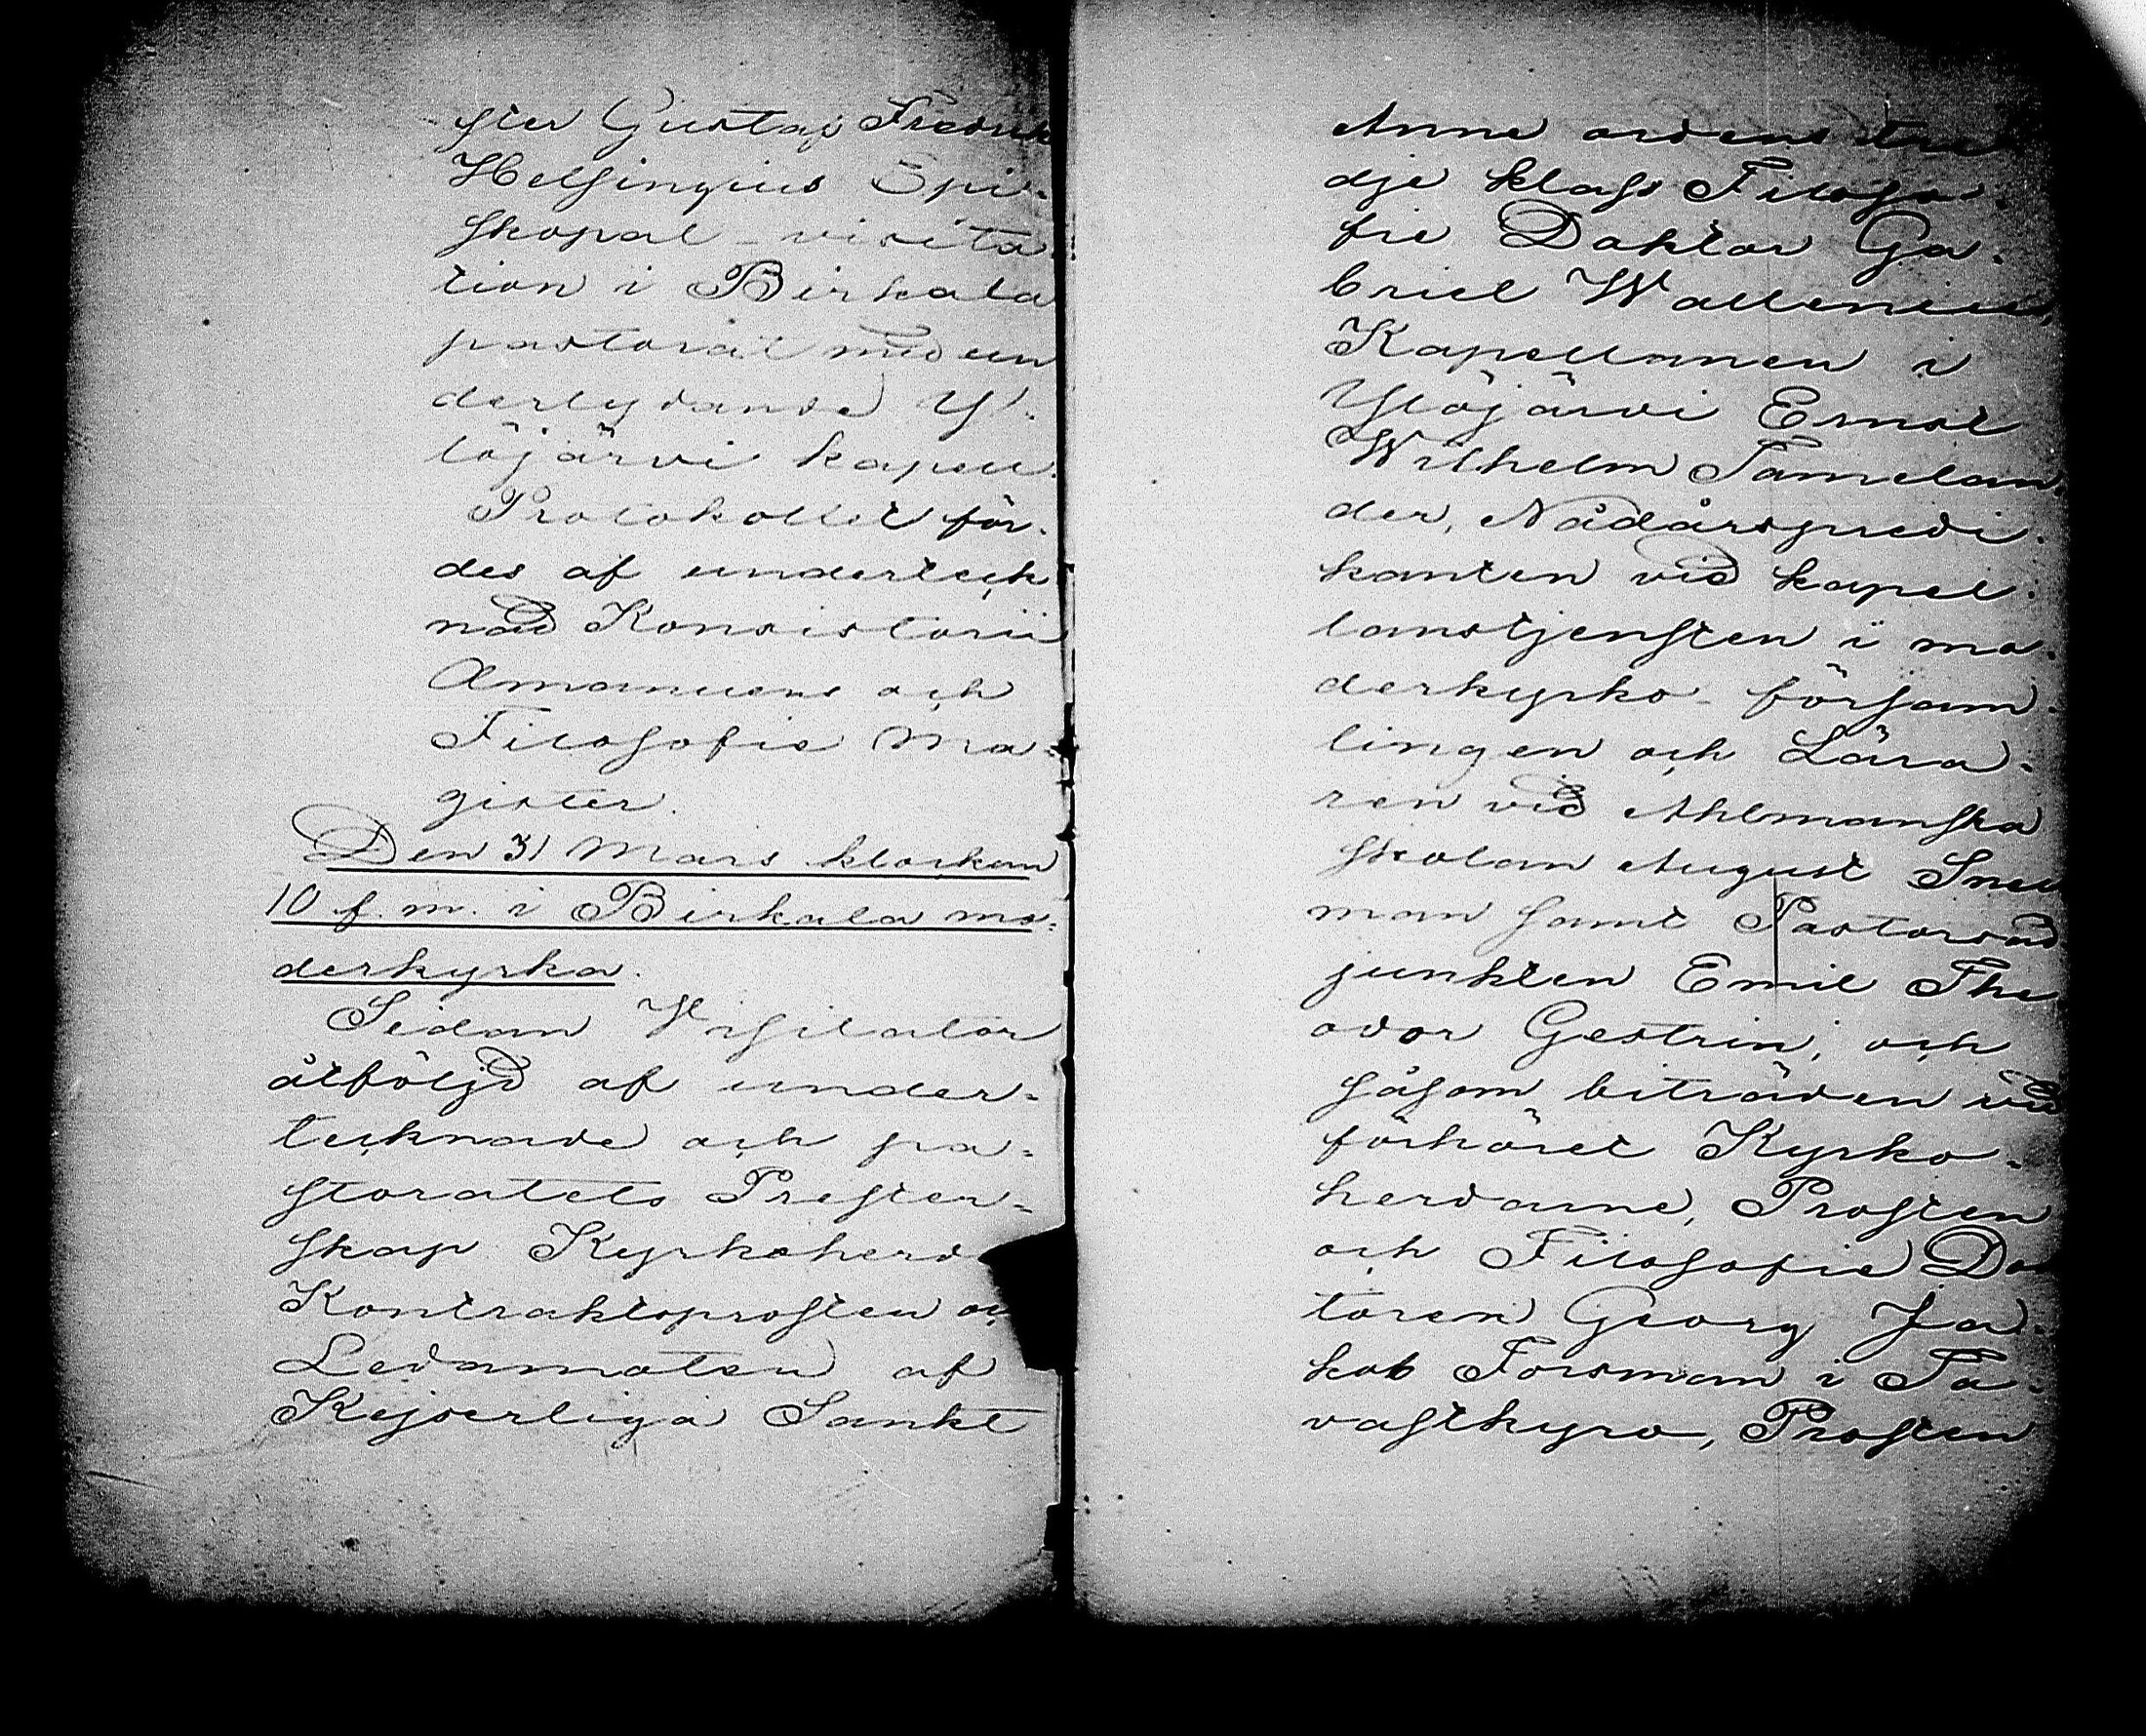 ster Gustaf Fredrik
Helsingius Epi-
skopal-visita
tion i Birkala
pastorat med un
derlydande Y-
löjärvi kapell.
Protokollet för-
des af underteck
nad Konsistorii
Amanuens och
Filosofie Ma-
gister.
Den 31 Mars klockan
10 f. m. i Birkala mo-
derkyrka.
Sedan Visitator
åtföljd af under-
tecknade och pa-
storatets Prester-
skap Kyrkoherd
Kontraktsprosten oc
Ledamoten af
Kejserliga Sankt
Anne ordens tre
dje klass Filoso-
fie Doktor Ga-
briel Wallenius,
Kapellanen i
Ylöjärvi Ernst
Wilhelm Tamelan
der, Nådårspredi-
kanten vid kapel-
lanstjensten i mo-
derkyrko-försam-
lingen och Lära-
ren vid Ahlmanska
skolan August Snell
man samt Pastorsad
junkten Emil The
odor Gestrin, och
såsom biträden vid
förhöret Kyrko-
herdarne, Prosten
och Filosofie Do
toren Georg Ja-
kob Forsman i Ta-
vastkyro, Prosten